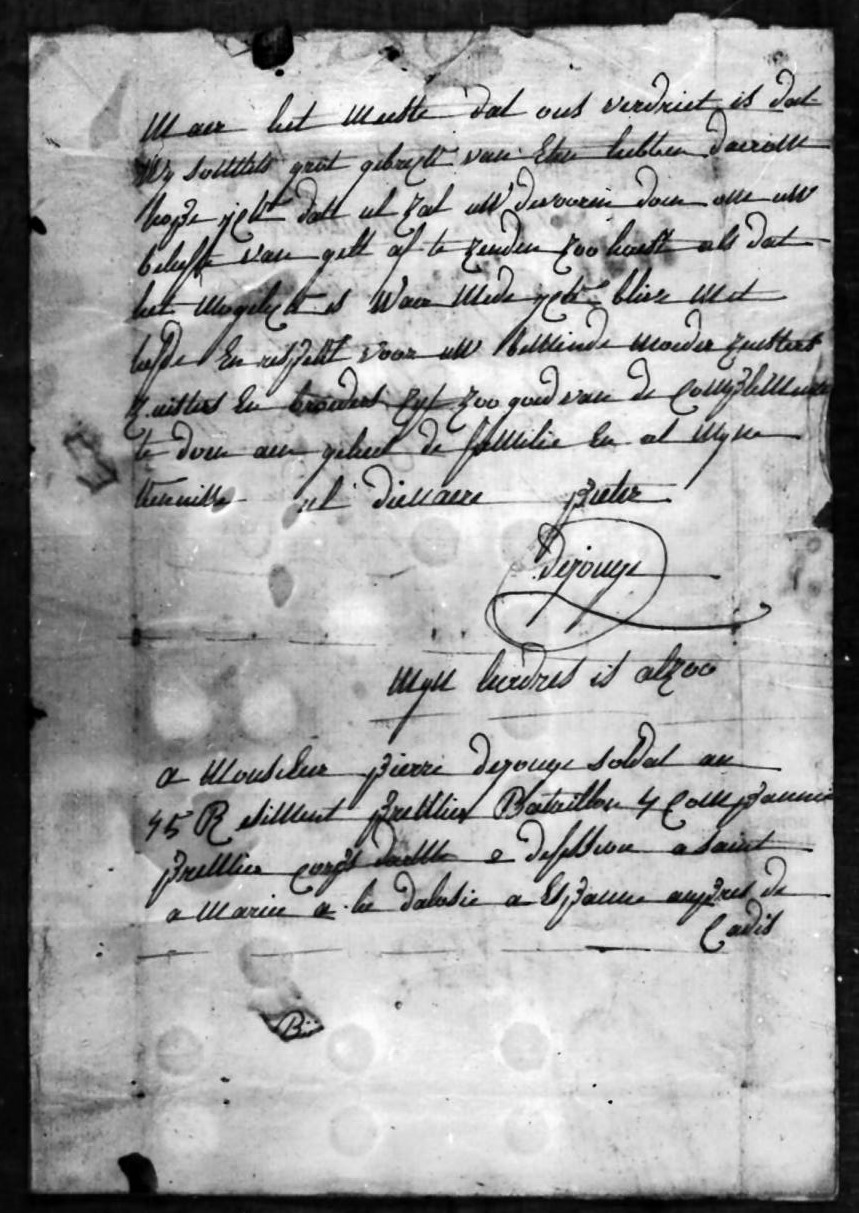 Maer het Meeste dat ons verdriet is dat
Wy somtids grot gebrekt van Eten hebben daerom
hope jckt datt ul zal uw devoorin doen om uw
belieft van gelt af te zenden zoo haest als dat
het Mogelyck is Waer Mede jckt blive Met
liefde En respeckt voor uw Beminde Moeder zusters
zuisters En broeders zyt zoo goed van de Complimenten
te doen aen geheel de familie En al Myne
ul dienaere pieter
dejonge
Myn hadres is alzoo
a Monsieur pierre dejonge soldat au
45 Resiment premier Bataillon 4 Compannie
premier corps darme 2 devision a saint
a Marie a la dalusie a Espanne aupres de
Cadis